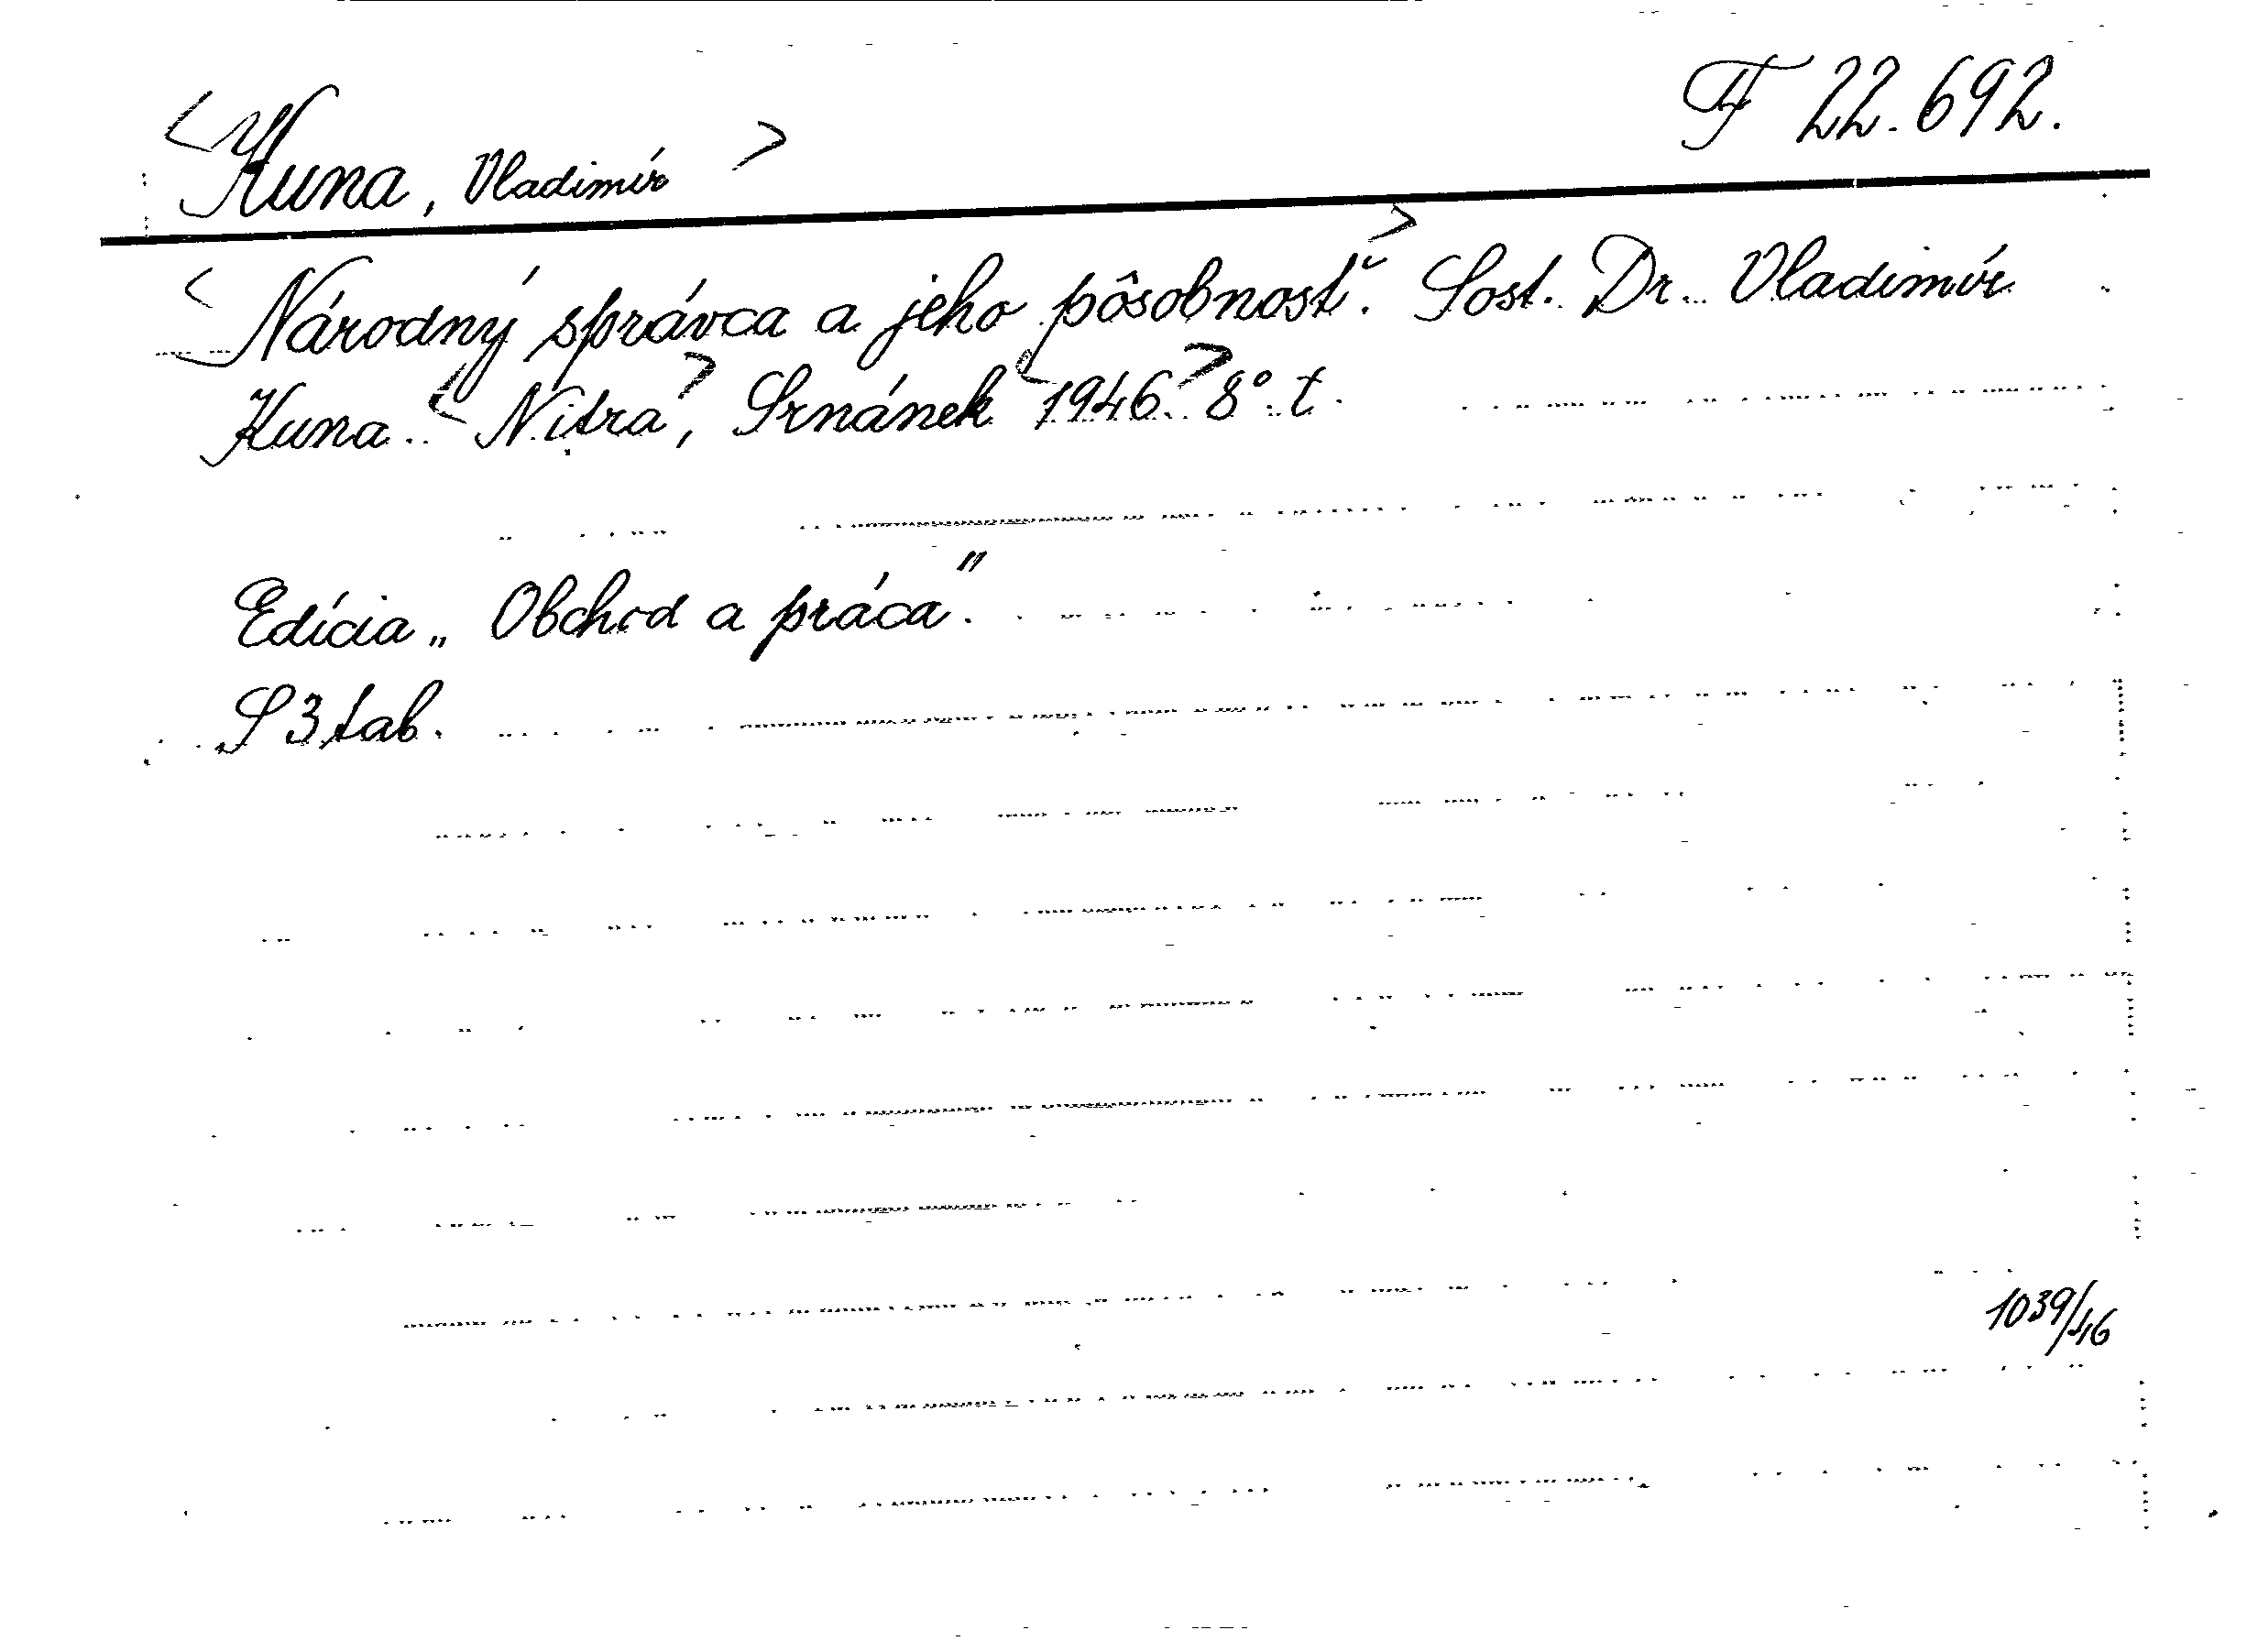 F 22.692.
<Kuna, Vladimír>
<Národný správca a jeho pôsobnosť.> Sost. Dr. Vladimír
Kuna. <Nitra>, Srnánek <1946.> 8°. t.
Edícia „Obchod a práca".
S 3 tab.
1039/46